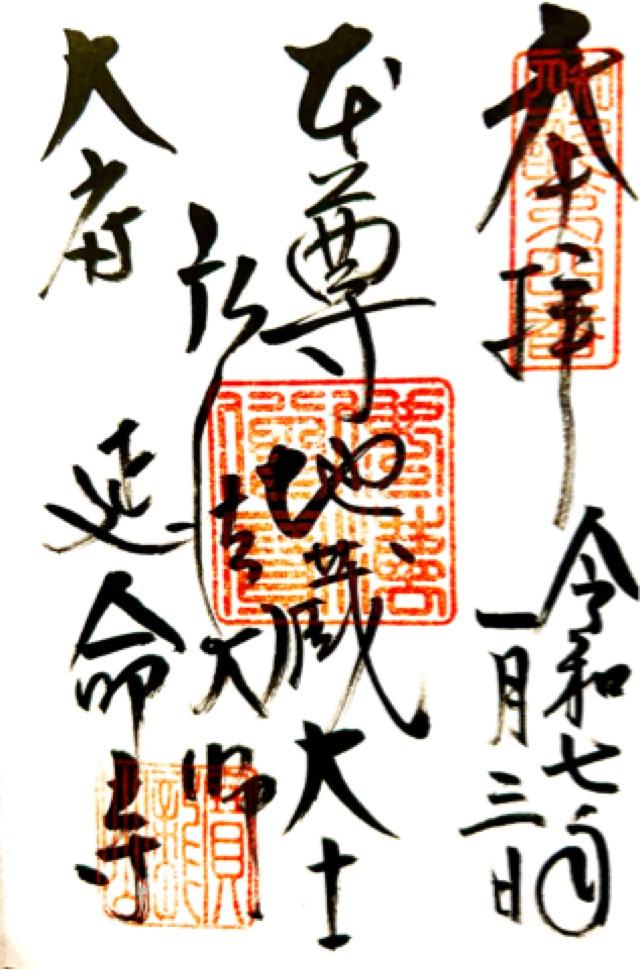 奉拝
令和七年
一月三日
本尊地蔵大士
弘法大師
大府 延命寺